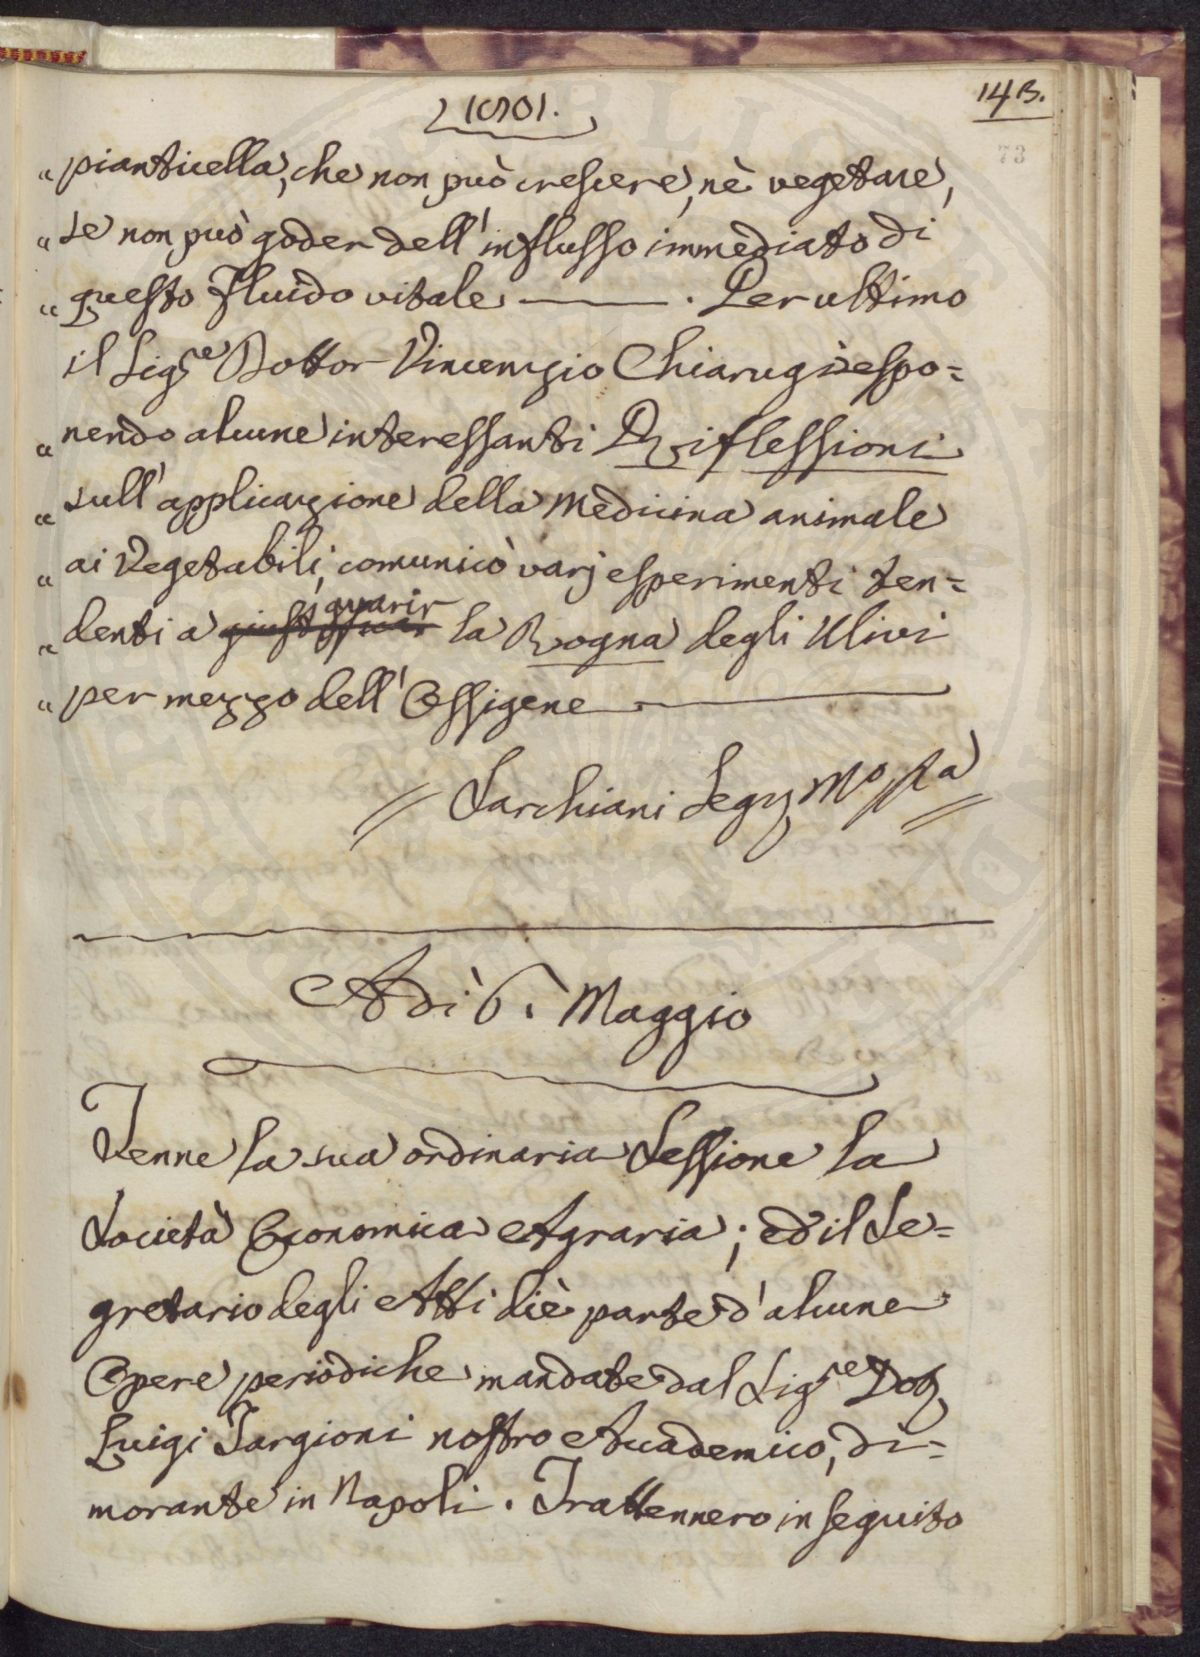 1801.
143.
73
" pianticella, che non può crescere, nè vegetare,
" se non può goder dell'influsso immediato di
" questo Fluido vitale ——— . Per ultimo
il Sigre Dottor Vincenzio Chiarugi espo=
" nendo alcune interessanti Riflessioni
" sull'applicazione della Medicina animale
" ai Vegetabili, comunicò varj esperimenti ten=
" denti a guarir la Rogna degli Ulivi
" per mezzo dell'Ossigene ———
// Sarchiani Segr. //
Adì 6. Maggio
Tenne la sua ordinaria Sessione la
Società Economica Agraria; ed il Se=
gretario degli Atti diè parte d'alcune
Opere periodiche mandate dal Sigre Dot.
Luigi Targioni nostro Accademico, di=
morante in Napoli. Trattennero in seguito